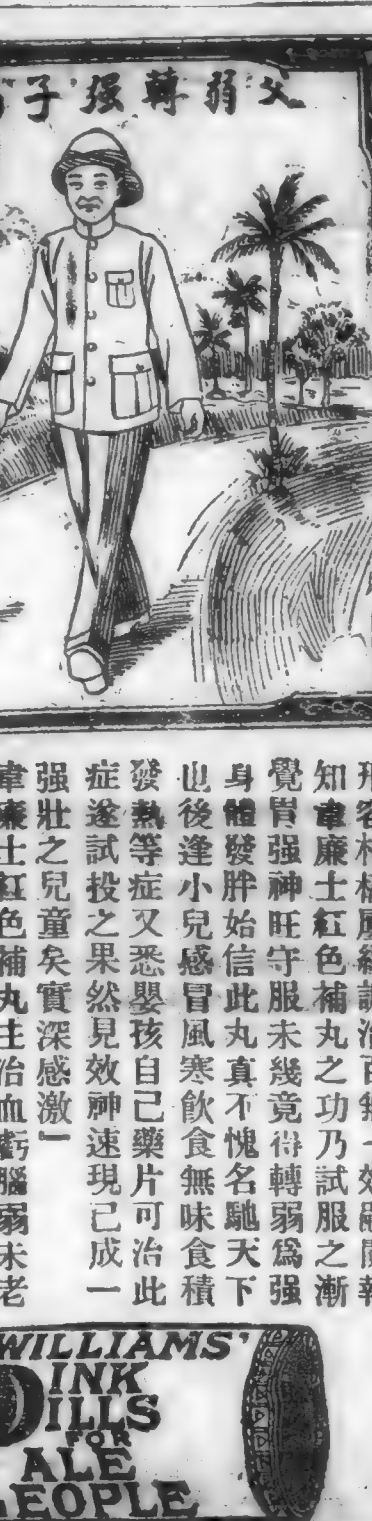 父弱轉强子
知韋廉士紅色補丸之功乃試服之漸
覺胃强神旺守服未幾竟得轉弱爲强
身體發胖始信此丸真不愧名馳天下
也後逢小兒感冒風寒飲食無味食積
發熱等症又悉嬰孩自己藥片可治此
症遂試投之果然見效神速現已成一
强壯之兒童矣實深感激」
韋廉士紅色補丸主治血虧腦弱未老
WILLIAMS'
INK
ILLS
FOR
ALE
EOPLE